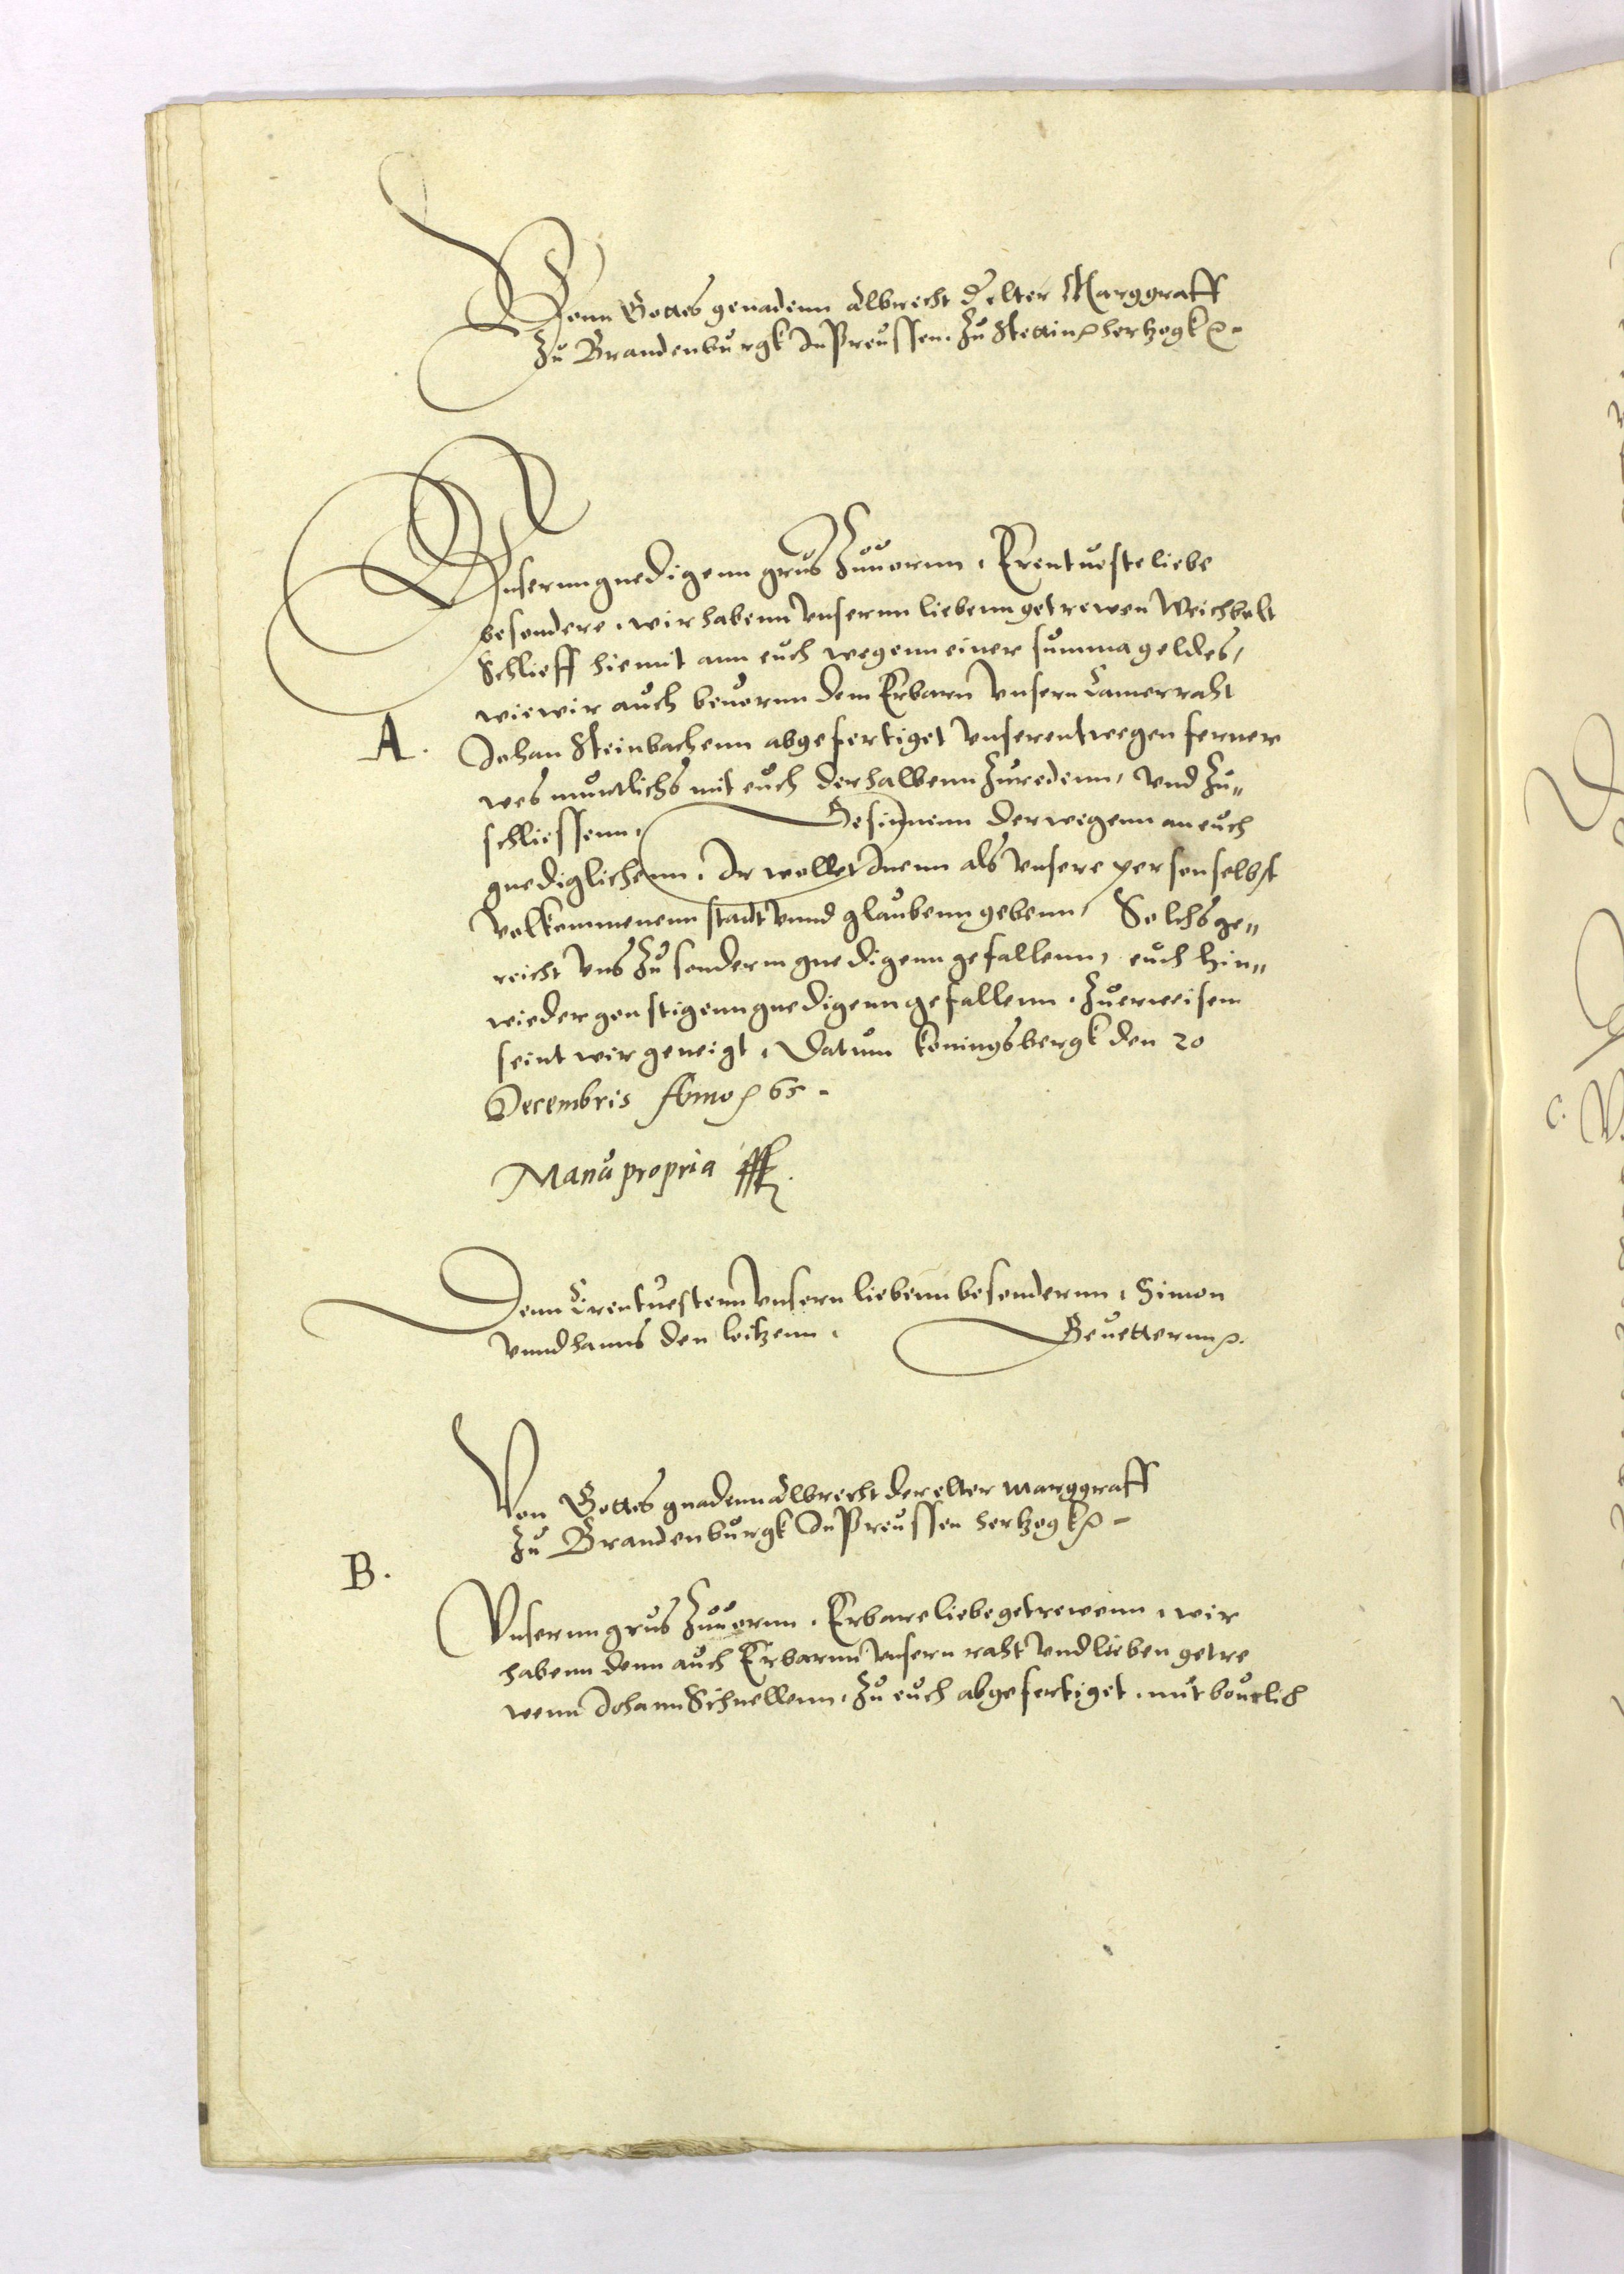 Vonn Gottes genadenn Albrecht d elter Marggraff
Zu Brandenburgk In Preussen. Zu Stettin ꝛc hertzogk ꝛc
Unsernn gnedigenn grus Zuuornn, Erentueste liebe
besondere, wir habenn Unsernn liebenn getrewen Weichbolt
Schlieff hiemit ann euch wegenn einer summa geldes,
wie wir auch beuornn dem Erbarn Unsern Camerraht
A. Johan Steinbachenn abgefertiget Unserentwegen ferner
wes muntlichs mit euch derhalbenn Zuredenn, vnd Zu„
schliessenn, Gesinnenn derwegenn an euch
gnediglichenn. Ir wollet Inenn als Unsere person selbst
Volkommenenn stadt Vnnd glaubenn gebenn, Solchs ge„
reicht Uns Zu sonderm gnedigenn gefallenn, euch hin„
wieder gonstigenn gnedigenn gefallenn. Zuerweisenn
seint wir geneigt, Datum Konningsbergk den 20
Decembris Anno ꝛc 65.
Manu propria
Denn Erentuestenn Unsern liebenn besondernn, Simon
vnnd hanns den loitzenn, Geuetternn ꝛc.
Von Gottes gnadenn Albrecht der elter marggraff
Zu Brandenburgk In Preussen hertzogk ꝛc
B.
Unsernn grus Zuuornn. Erbare liebe getrewenn, wir
habenn denn auch Erbarnn Unsern raht Vnd lieben getre
wenn Johann Schnellenn, Zu euch abgefertiget, mit
C.